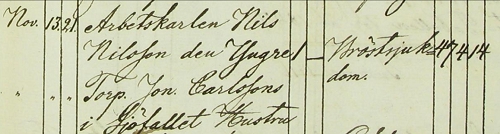 Nov. 13. 21. Arbetskarlen Nils
Nilsson den Yngre 1 — Bröstsjuk= 47 4 14
dom.
" " " Torp. Jon. Carlssons
i Sjöfallet Hustru